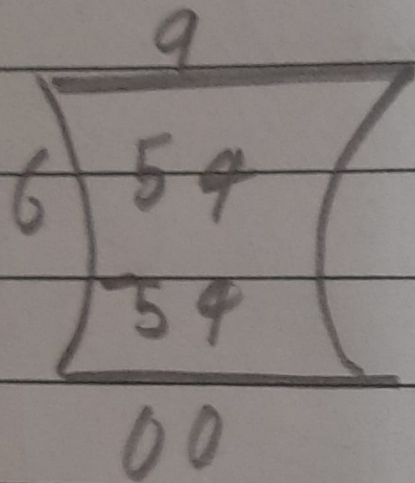 9
6 ) 54 (
-54
00